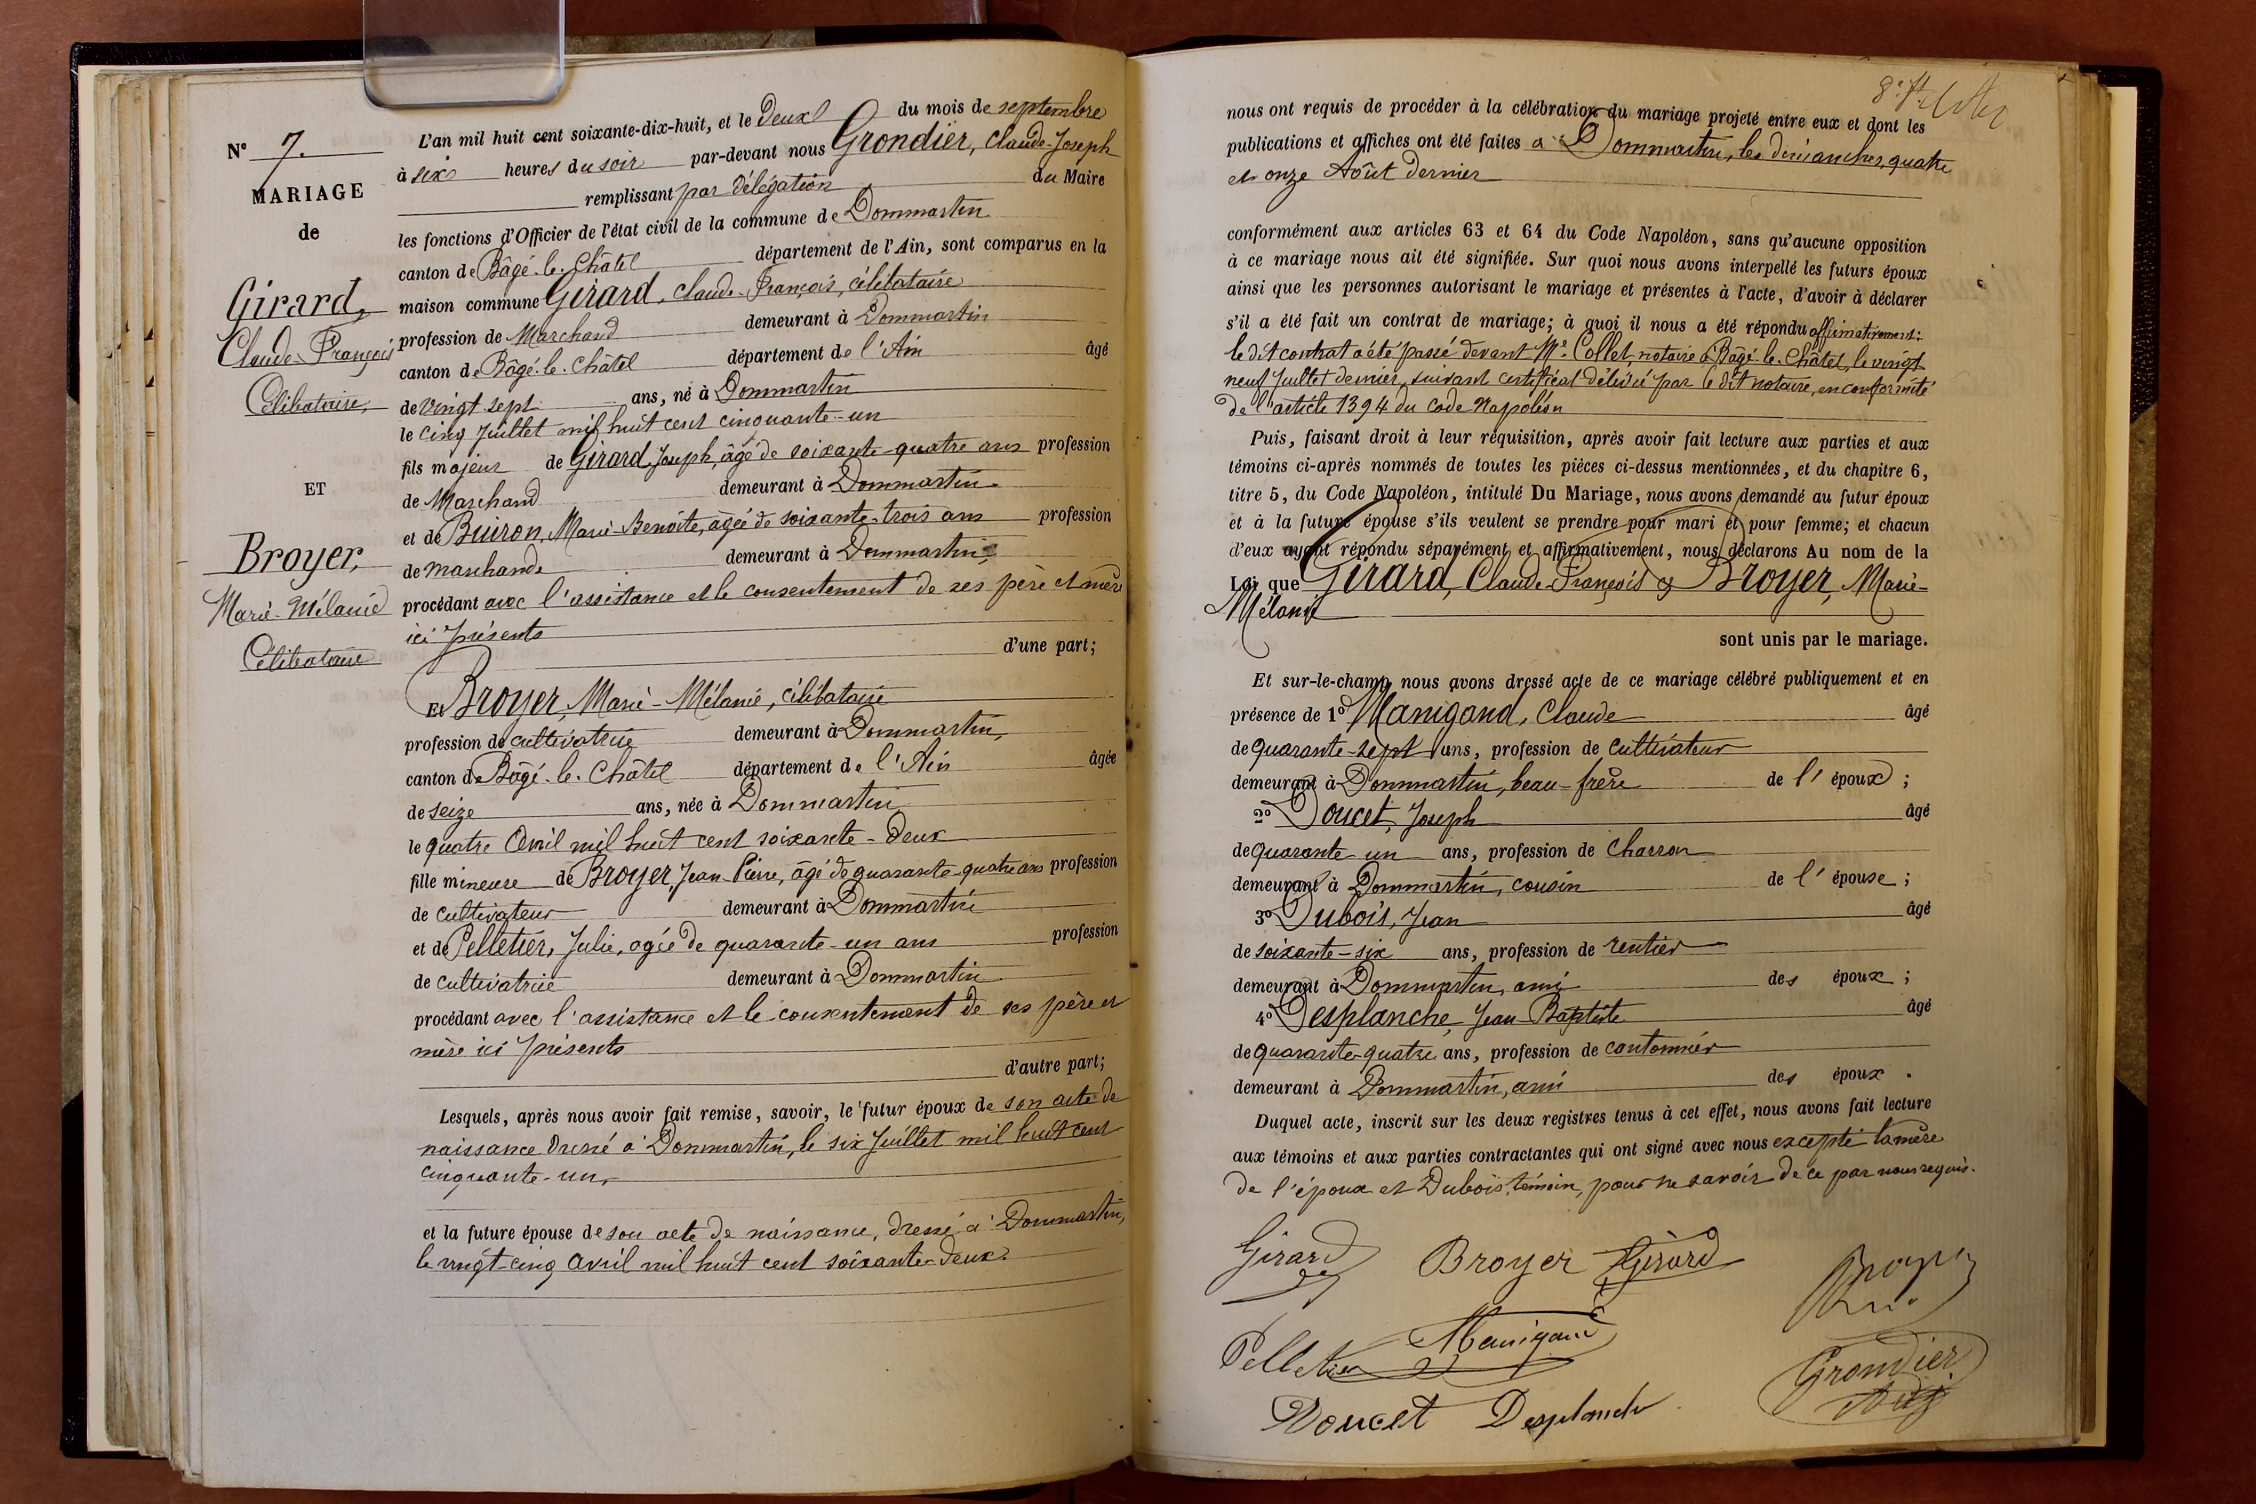 N° 7.
MARIAGE
de
Girard,
Claude-François
Célibataire,
ET
Broyer,
Marie-Mélanie
Célibataire
L'an mil huit cent soixante-dix-huit, et le Deux du mois de septembre
à six heures du soir par-devant nous Grondier, Claude-Joseph
remplissant par délégation du Maire
les fonctions d'Officier de l'état civil de la commune de Dommartin
canton de Bâgé-le-Châtel département de l'Ain, sont comparus en la
maison commune Girard, Claude-François, célibataire
profession de Marchand demeurant à Dommartin
canton de Bâgé-le-Châtel département de l'Ain âgé
de vingt sept ans, né à Dommartin
le cinq Juillet mil huit cent cinquante-un
fils majeur de Girard Joseph, âgé de soixante-quatre ans profession
de Marchand demeurant à Dommartin
et de Buiron, Marie-Benoîte, âgée de soixante-trois ans profession
de marchande demeurant à Dommartin,
procédant avec l'assistance et le consentement de ses père et mère
ici présents
d'une part;
Et Broyer, Marie-Mélanie, célibataire
profession de cultivatrice demeurant à Dommartin,
canton de Bâgé-le-Châtel département de l'Ain âgée
de seize ans, née à Dommartin
le quatre Avril mil huit cent soixante-deux
fille mineure de Broyer, Jean-Pierre, âgé de quarante-quatre ans profession
de cultivateur demeurant à Dommartin
et de Pelletier, Julie, agée de quarante-un ans profession
de cultivatrice demeurant à Dommartin
procédant avec l'assistance et le consentement de ses père et
mère ici présents
d'autre part;
Lesquels, après nous avoir fait remise, savoir, le futur époux de son acte de
naissance dressé à Dommartin, le six Juillet mil huit cent
cinquante-un,
et la future épouse de son acte de naissance, dressé à Dommartin,
le vingt-cinq avril mil huit cent soixante-deux.
nous ont requis de procéder à la célébration du mariage projeté entre eux et dont les
publications et affiches ont été faites à Dommartin, les dimanches, quatre
et onze Août dernier
conformément aux articles 63 et 64 du Code Napoléon, sans qu'aucune opposition
à ce mariage nous ait été signifiée. Sur quoi nous avons interpellé les futurs époux
ainsi que les personnes autorisant le mariage et présentes à l'acte, d'avoir à déclarer
s'il a été fait un contrat de mariage; à quoi il nous a été répondu affirmativement:
le dit contrat a été passé devant Me Collet, notaire à Bâgé-le-Châtel, le vingt
neuf Juillet dernier, suivant certificat délivré par le dit notaire, en conformité
de l'article 1394 du Code Napoléon
Puis, faisant droit à leur réquisition, après avoir fait lecture aux parties et aux
témoins ci-après nommés de toutes les pièces ci-dessus mentionnées, et du chapitre 6,
titre 5, du Code Napoléon, intitulé Du Mariage, nous avons demandé au futur époux
et à la future épouse s'ils veulent se prendre pour mari et pour femme; et chacun
d'eux ayant répondu séparément et affirmativement, nous déclarons Au nom de la
Loi que Girard, Claude-François & Broyer, Marie-
Mélanie
sont unis par le mariage.
Et sur-le-champ nous avons dressé acte de ce mariage célébré publiquement et en
présence de 1° Manigand, Claude âgé
de quarante-sept ans, profession de cultivateur
demeurant à Dommartin, beau-frère de l'époux;
2° Doucet, Joseph âgé
de quarante-un ans, profession de charron
demeurant à Dommartin, cousin de l'épouse;
3° Dubois, Jean âgé
de soixante-six ans, profession de rentier
demeurant à Dommartin, ami des époux;
4° Desplanche, Jean-Baptiste âgé
de quarante-quatre ans, profession de cantonnier
demeurant à Dommartin, ami des époux.
Duquel acte, inscrit sur les deux registres tenus à cet effet, nous avons fait lecture
aux témoins et aux parties contractantes qui ont signé avec nous excepté la mère
de l'époux et Dubois, témoin, pour ne savoir de ce par nous requis.
Girard Broyer Girard Broyer
Pelletier Manigand Grondier
Doucet Desplanche